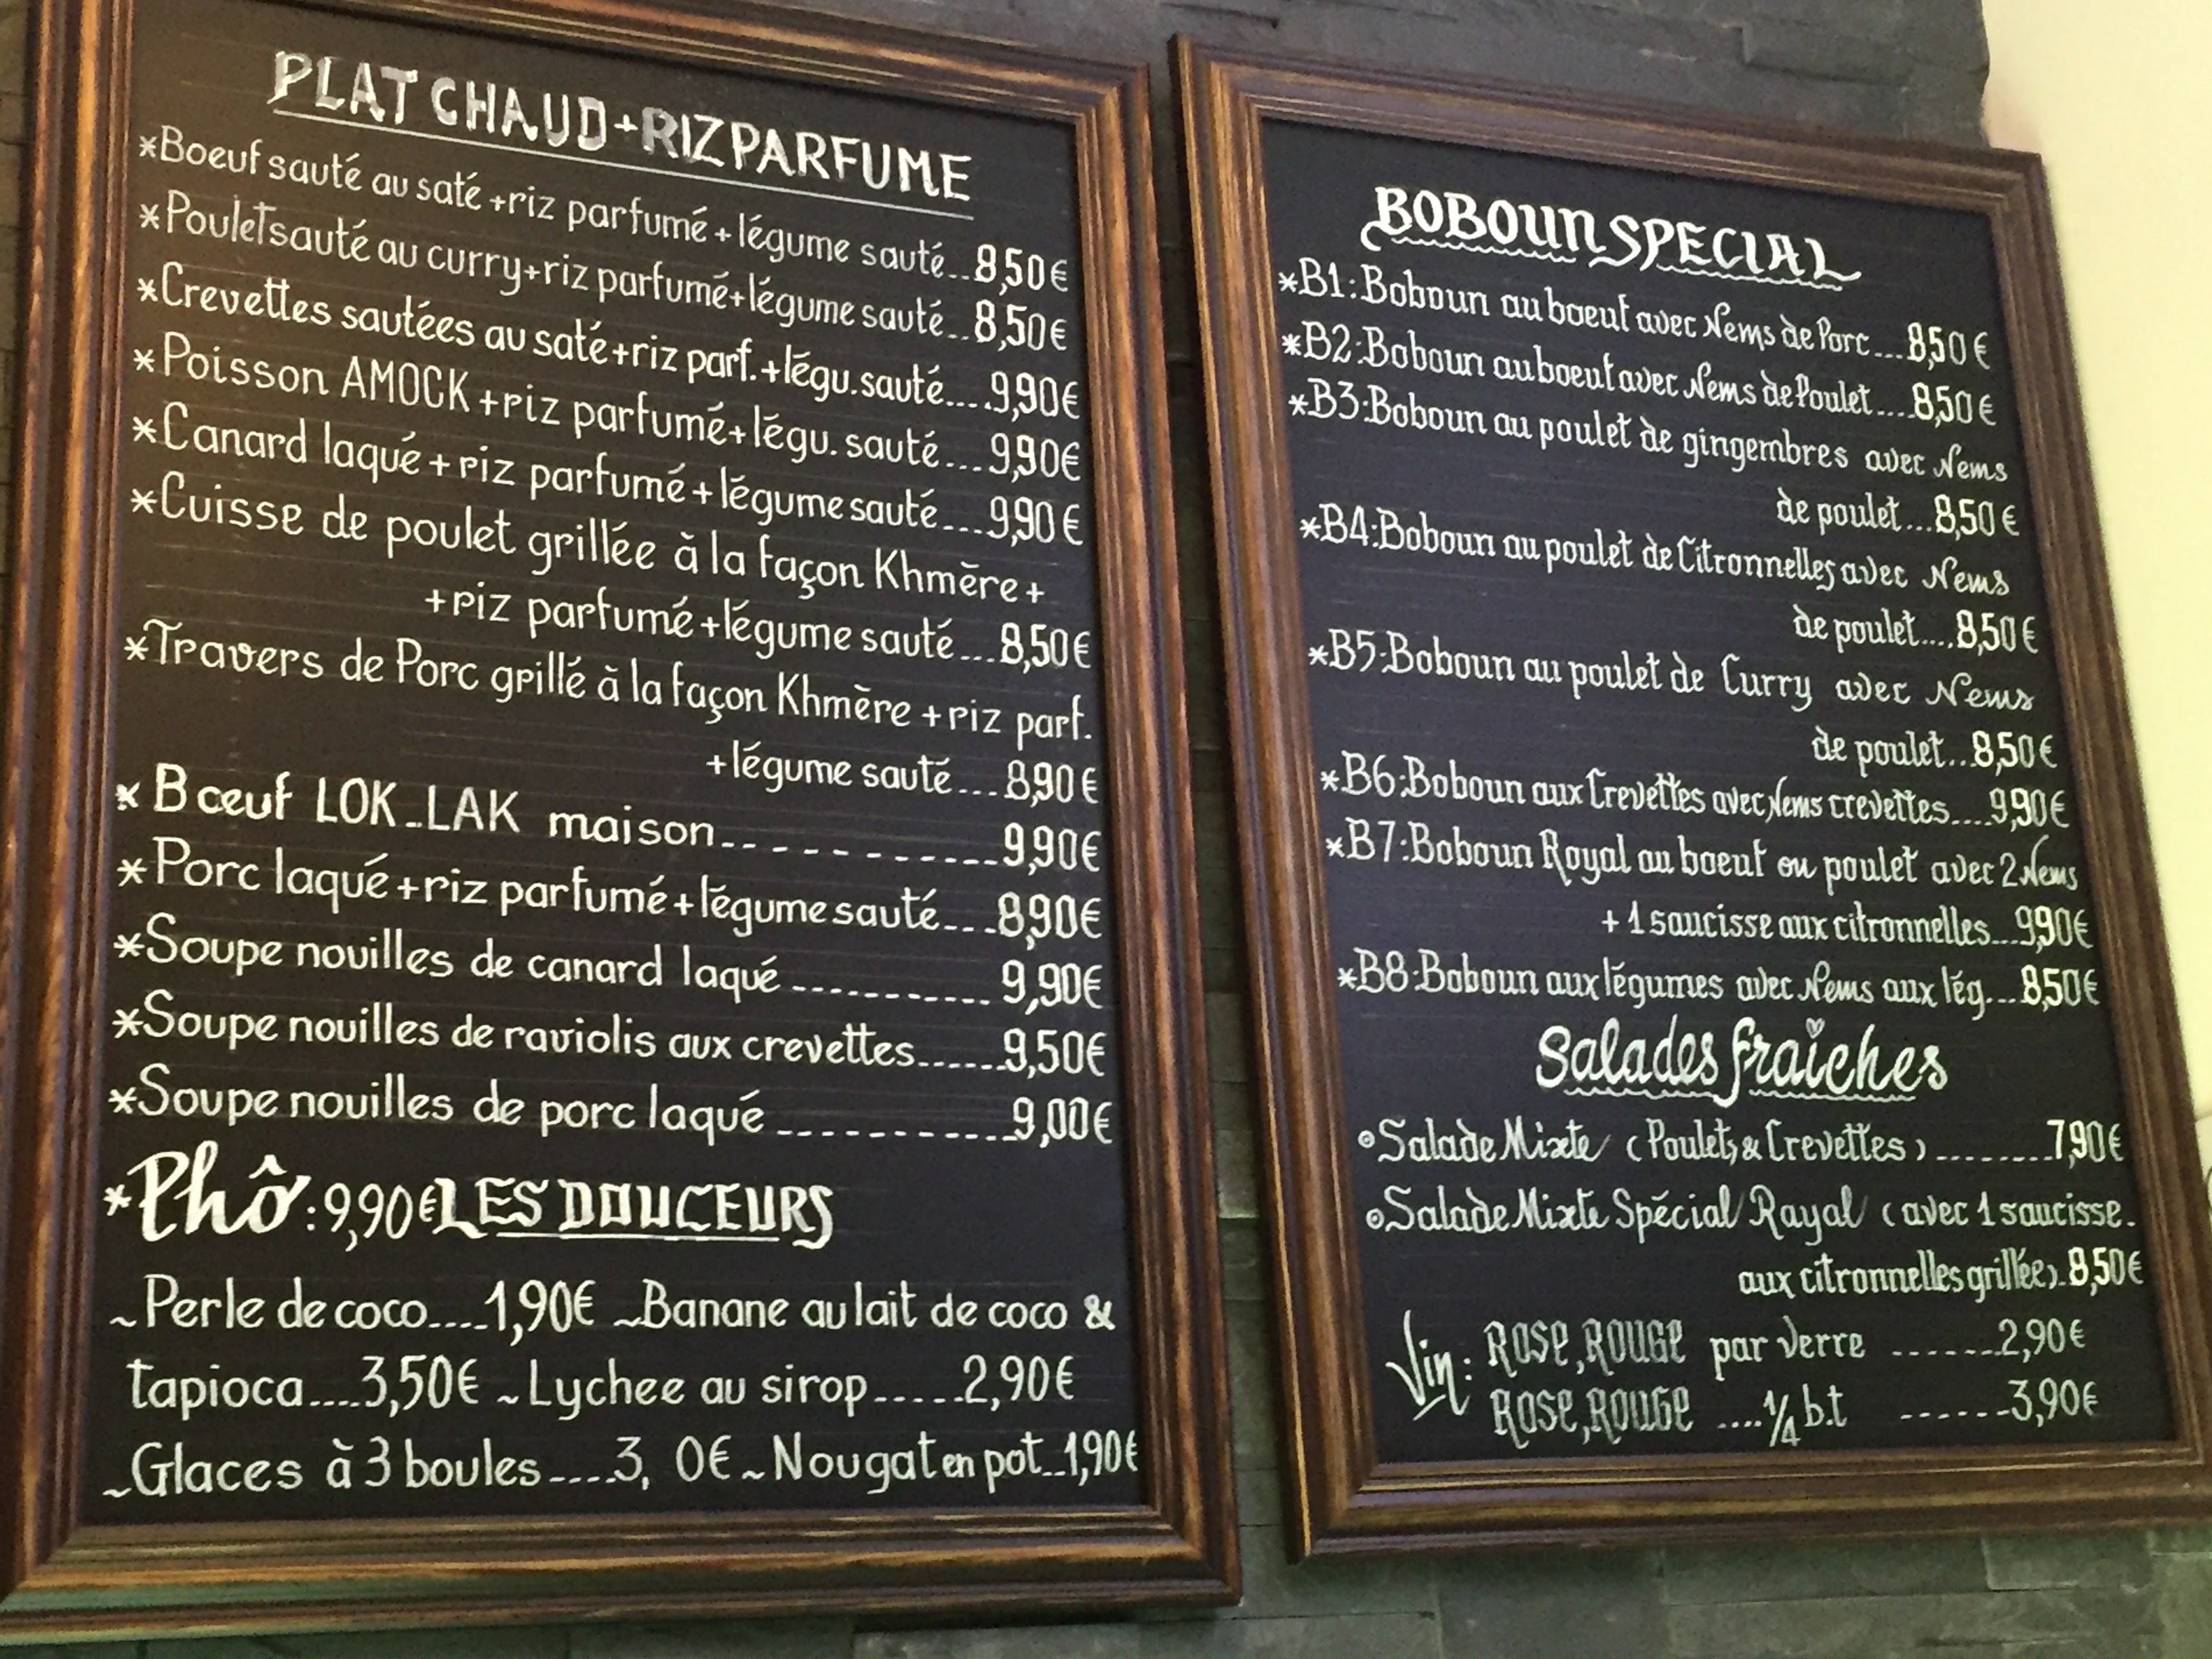 PLAT CHAUD+RIZ PARFUME
*Boeuf sauté au saté +riz parfumé + légume sauté..8,50€
*Poulet sauté au curry+riz parfumé+légume sauté..8,50€
*Crevettes sautées au saté+riz parf.+légu.sauté....9,90€
*Poisson AMOCK +riz parfumé+légu. sauté...9,90€
*Canard laqué + riz parfumé + légume sauté...9,90€
*Cuisse de poulet grillée à la façon Khmère+
+riz parfumé+légume sauté...8,50€
*Travers de Porc grillé à la façon Khmère +riz parf.
+légume sauté...8,90€
*Bœuf LOK_LAK maison............9,90€
*Porc laqué +riz parfumé+légume sauté...8,90€
*Soupe nouilles de canard laqué...........9,90€
*Soupe nouilles de raviolis aux crevettes......9,50€
*Soupe nouilles de porc laqué............9,00€
*Phở:9,90€ LES DOUCEURS
~Perle de coco....1,90€ ~Banane au lait de coco &
tapioca....3,50€ ~Lychee au sirop.....2,90€
~Glaces à 3 boules....3, 0€ ~Nougat en pot..1,90€
BOBOUN SPECIAL
*B1:Boboun au boeuf avec Nems de Porc...8,50€
*B2:Boboun au boeuf avec Nems de Poulet....8,50€
*B3:Boboun au poulet de gingembres avec Nems
de poulet...8,50€
*B4:Boboun au poulet de Citronnelles avec Nems
de poulet....8,50€
*B5:Boboun au poulet de Curry avec Nems
de poulet...8,50€
*B6:Boboun aux Crevettes avec Nems crevettes....9,90€
*B7:Boboun Royal au boeuf ou poulet avec 2 Nems
+ 1 saucisse aux citronnelles...9,90€
*B8:Boboun aux légumes avec Nems aux lég...8,50€
Salades fraiches
Salade Mixte (Poulets & Crevettes)........7,90€
Salade Mixte Spécial Rayal (avec 1 saucisse.
aux citronnelles grillée).8,50€
Vin: ROSE, ROUGE par verre .......2,90€
ROSE, ROUGE ....1/4 b.t ......3,90€